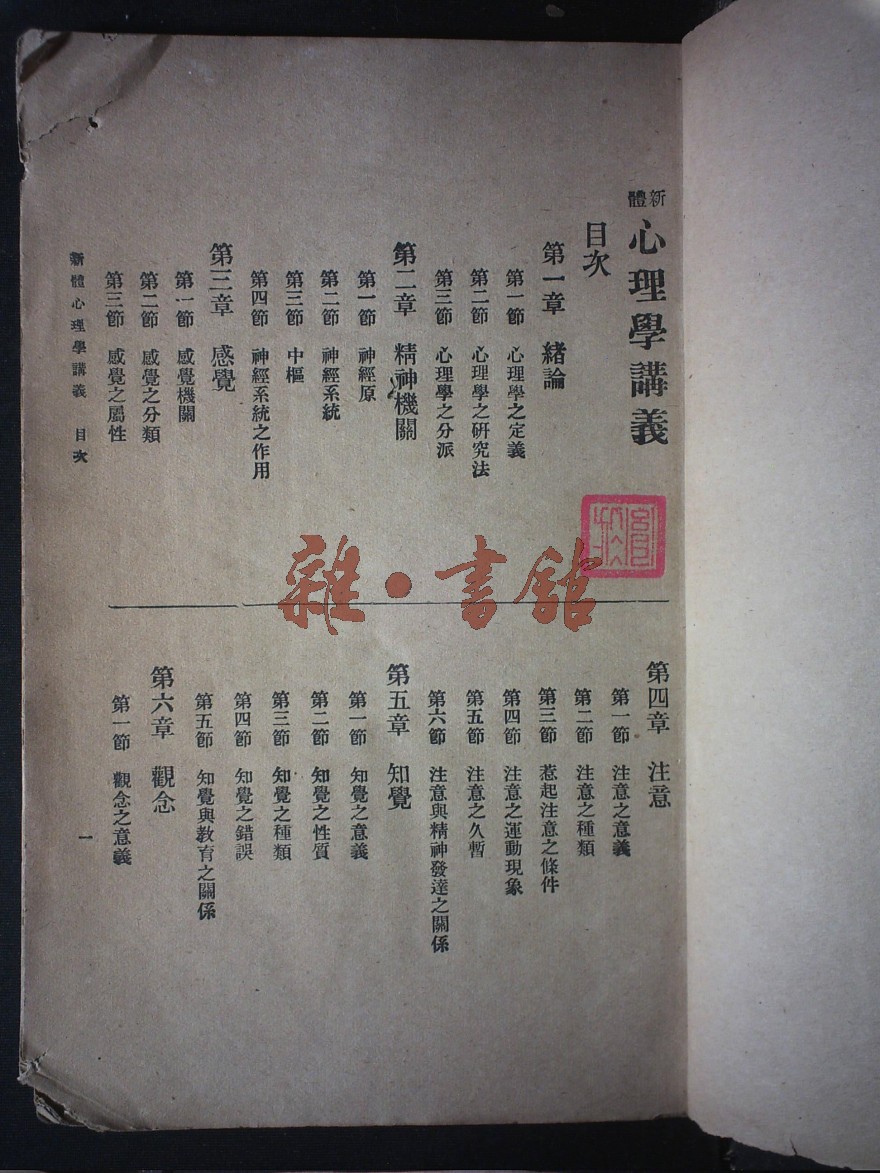 新體心理學講義
目次
第一章 緒論
第一節 心理學之定義
第二節 心理學之研究法
第三節 心理學之分派
第二章 精神機關
第一節 神經原
第二節 神經系統
第三節 中樞
第四節 神經系統之作用
第三章 感覺
第一節 感覺機關
第二節 感覺之分類
第三節 感覺之屬性
第四章 注意
第一節 注意之意義
第二節 注意之種類
第三節 惹起注意之條件
第四節 注意之運動現象
第五節 注意之久暫
第六節 注意與精神發達之關係
第五章 知覺
第一節 知覺之意義
第二節 知覺之性質
第三節 知覺之種類
第四節 知覺之錯誤
第五節 知覺與教育之關係
第六章 觀念
第一節 觀念之意義
新體心理學講義 目次
一
雜·書館